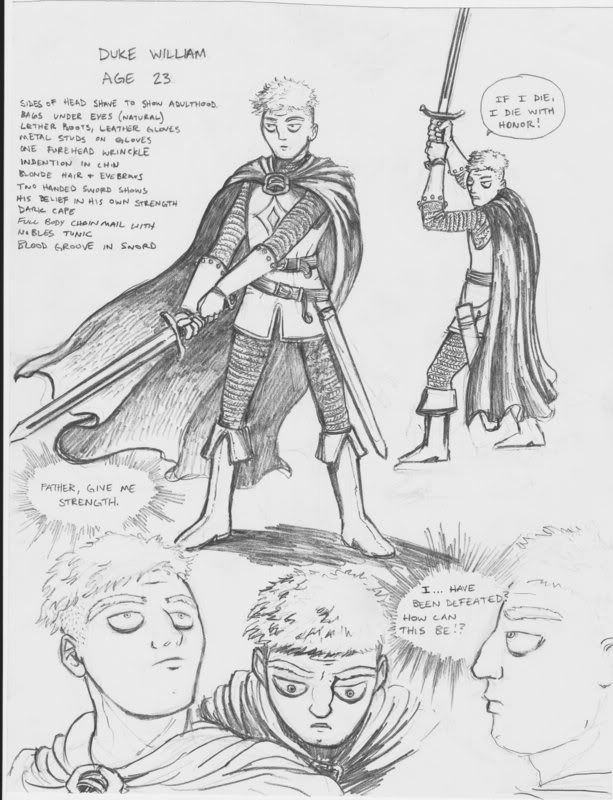 DUKE WILLIAM
AGE 23
SIDES OF HEAD SHAVE TO SHOW ADULTHOOD.
BAGS UNDER EYES (NATURAL)
LETHER BOOTS, LEATHER GLOVES
METAL STUDS ON GLOVES
ONE FOREHEAD WRINCKLE
INDENTION IN CHIN
BLONDE HAIR & EYEBROWS
TWO HANDED SWORD SHOWS
HIS BELIEF IN HIS OWN STRENGTH
DARK CAPE
FULL BODY CHAINMAIL WITH
NOBLES TUNIC
BLOOD GROOVE IN SWORD
IF I DIE,
I DIE WITH
HONOR!
FATHER, GIVE ME
STRENGTH.
I... HAVE
BEEN DEFEATED?
HOW CAN
THIS BE!?